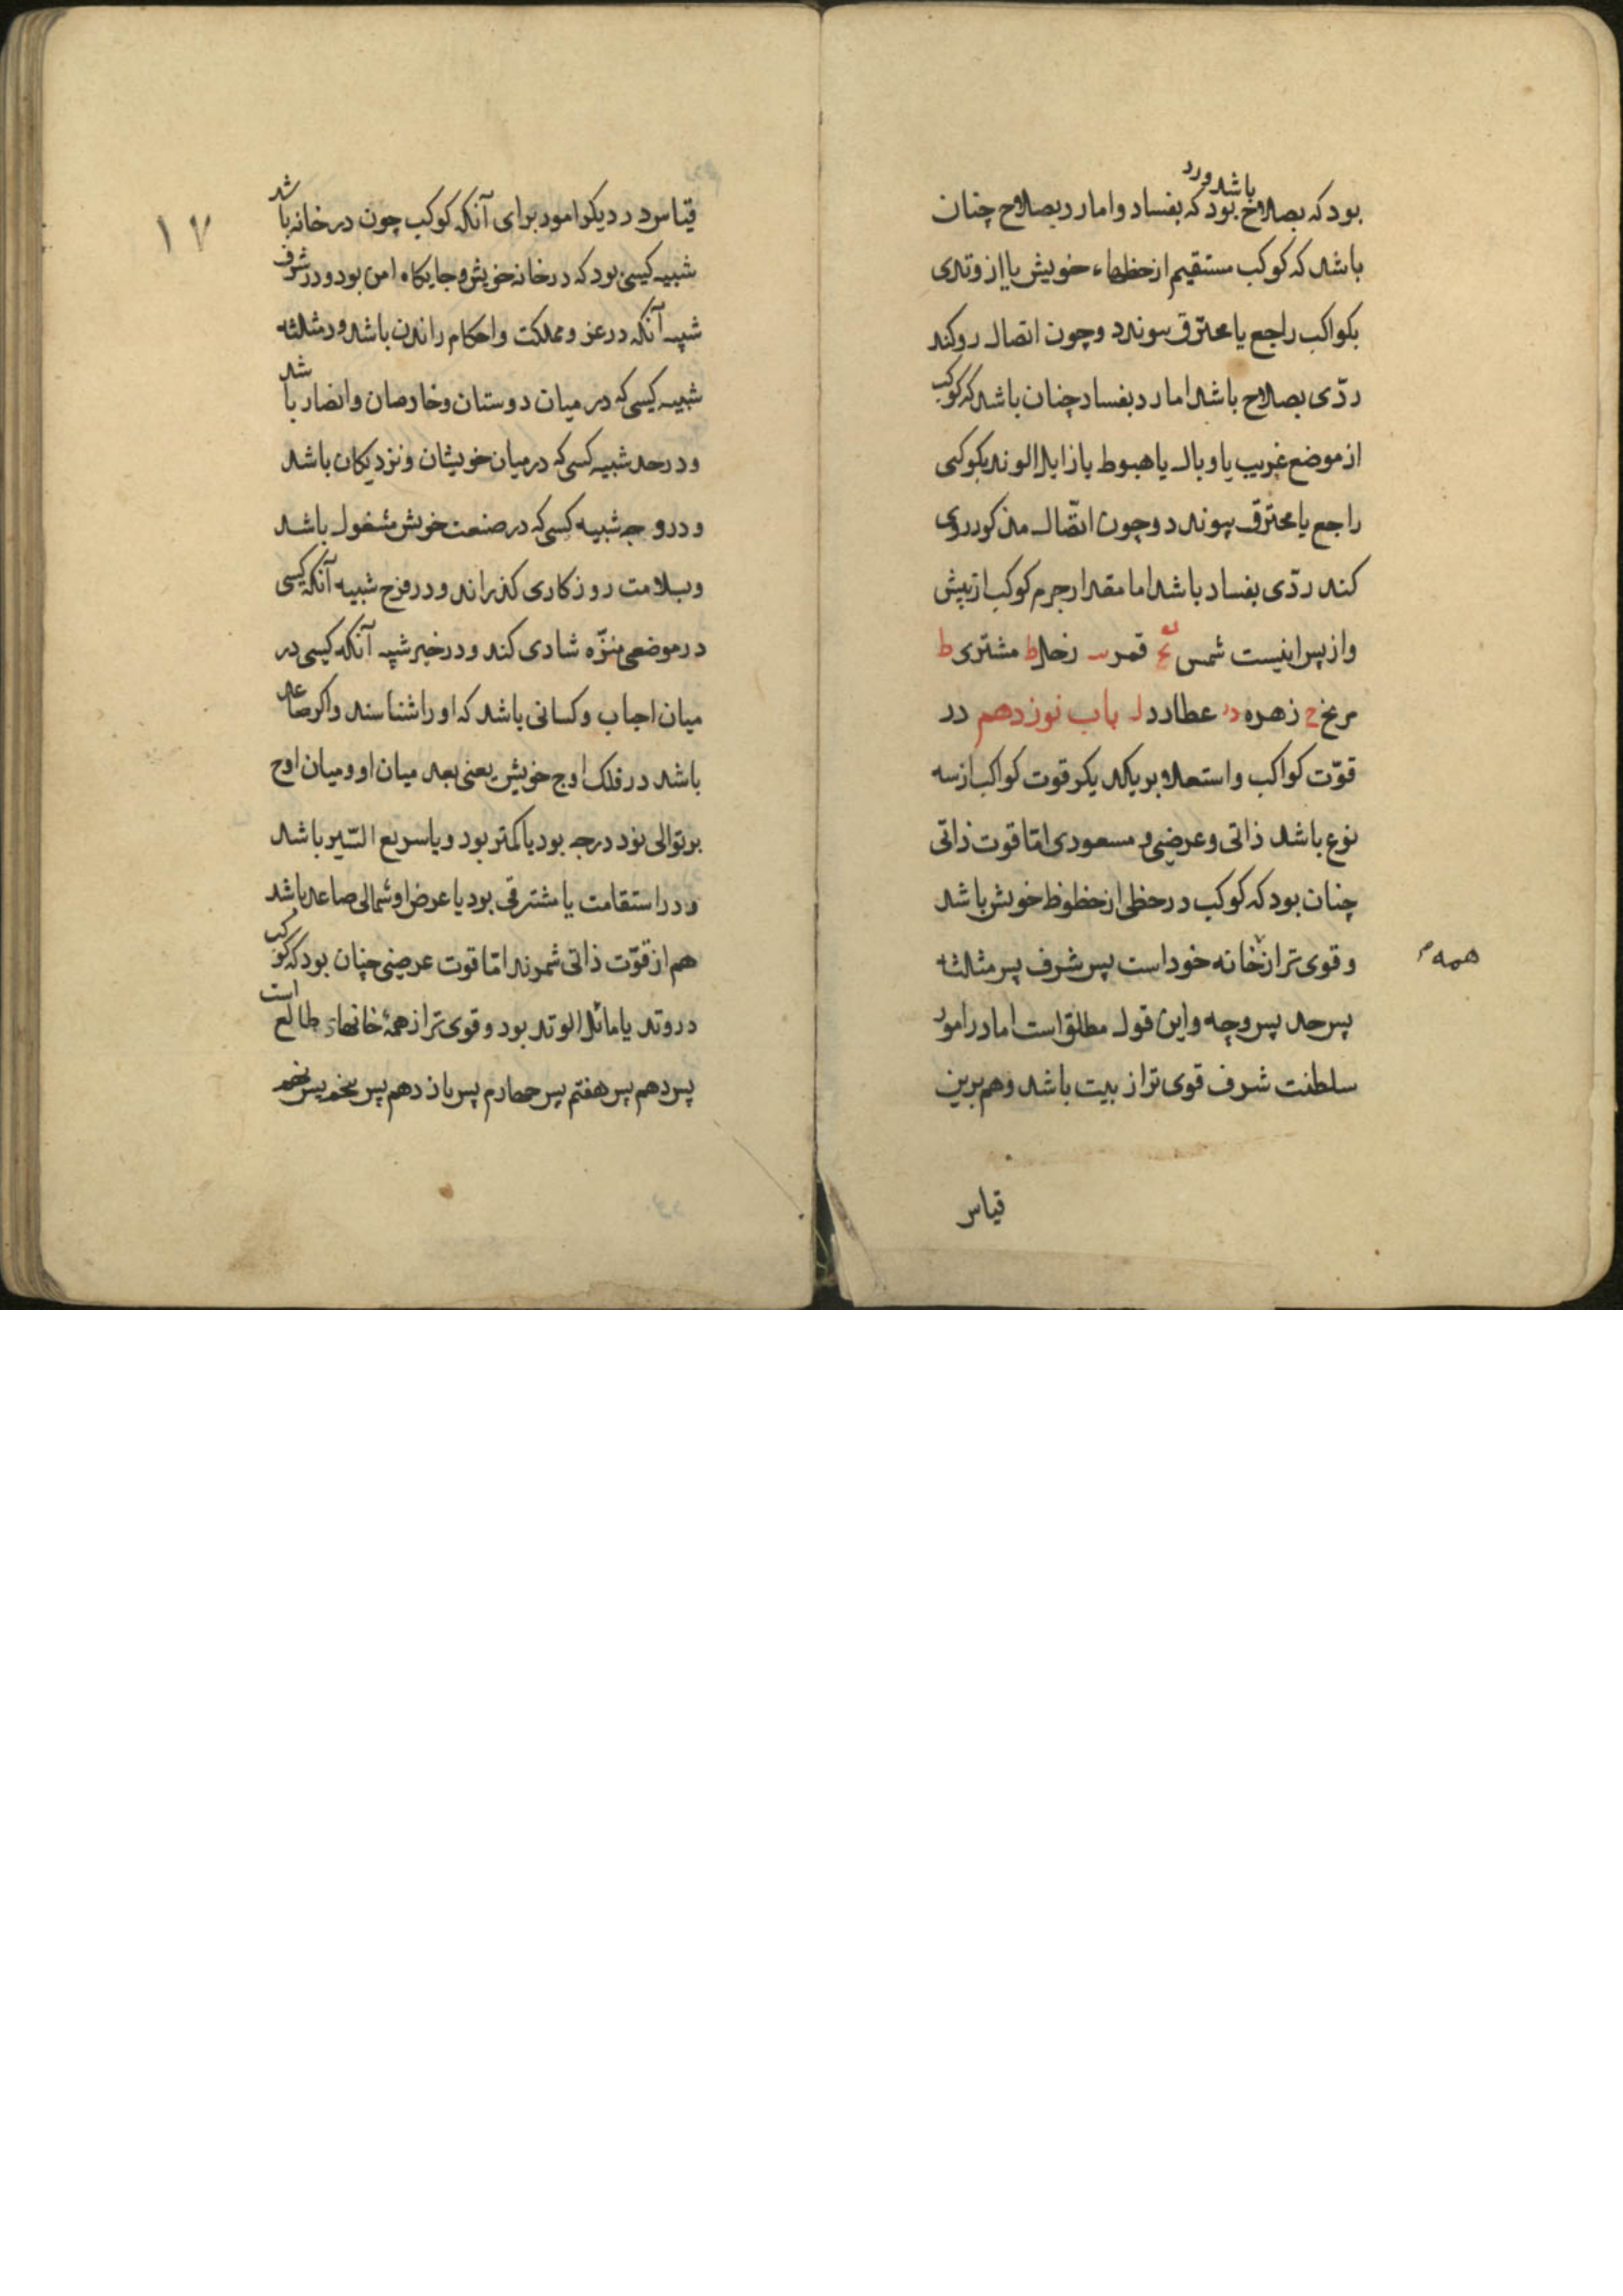 باشد ورد
بود که بصلاح بود که بفساد واما رد بصلاح چنان
باشد که کوکب مستقیم از حظهاء خویش یا از وتدی
بکواکب راجع یا محترق پیوندد وچون اتصال رو کند
ردّی بصلاح باشد اما رد بفساد چنان باشد که کوکب
از موضع غریب یا وبال یا هبوط یا زایل الوتد بکوکبی
راجع یا محترق پیوندد وچون اتّصال مذکور روی
کند ردّی بفساد باشد اما مقدار جرم کوکب از پیش
واز پس اینیست شمس قمر زحل ط مشتری ط
مریخ ح زهره عطارد باب نوزدهم در
قوّت کواکب واستعلا بر یکدیکر قوت کواکب از سه
نوع باشد ذاتی وعرضی و مسعودی امّا قوت ذاتی
چنان بود که کوکب در حظی از حظوظ خویش باشد
وقوی تر از خانه خود است پس شرف پس مثلثه
همه
پس حد پس وجه واین قول مطلق است اما در امور
سلطنت شرف قوی تر از بیت باشد وهم برین
قیاس
١٧
قیاس در دیکر امور برای آنکه کوکب چون در خانه باشد
شبیه کیسی بود که در خانه خویش و جایکاه امن بود ودر شرف
شبیه آنکه در عز ومملکت واحکام راندن باشد ودر مثلثه
شبیه کیسی که در میان دوستان وخارصان وانصار باشد
ودر حد شبیه کسی که در میان خویشان ونزدیکان باشد
ودر وجه شبیه کسی که در صنعت خویش مشغول باشد
وبسلامت روزکاری کذراند ودر فرح شبیه آنکه کیسی
در موضعی منزّه شادی کند ودر خیر شبیه آنکه کیسی در
میان اجباب وکسانی باشد که او را شناسند واکر صاعد
باشد در فلک اوج خویش یعنی بعد میان او ومیان اوج
بر توالی نود درجه بود یا کمتر بود ویا سریع السّیر باشد
ودر استقامت یا مشترقی بود یا عرض او شمالی صاعد باشد
هم از قوّت ذاتی شمرند امّا قوت عرضی چنان بود که کوکب
در وتد یا مائل الوتد بود وقوی تر از همهٔ خانهای طالع است
پس دهم پس هفتم پس چهارم پس یازدهم پس پنجم پس نهم